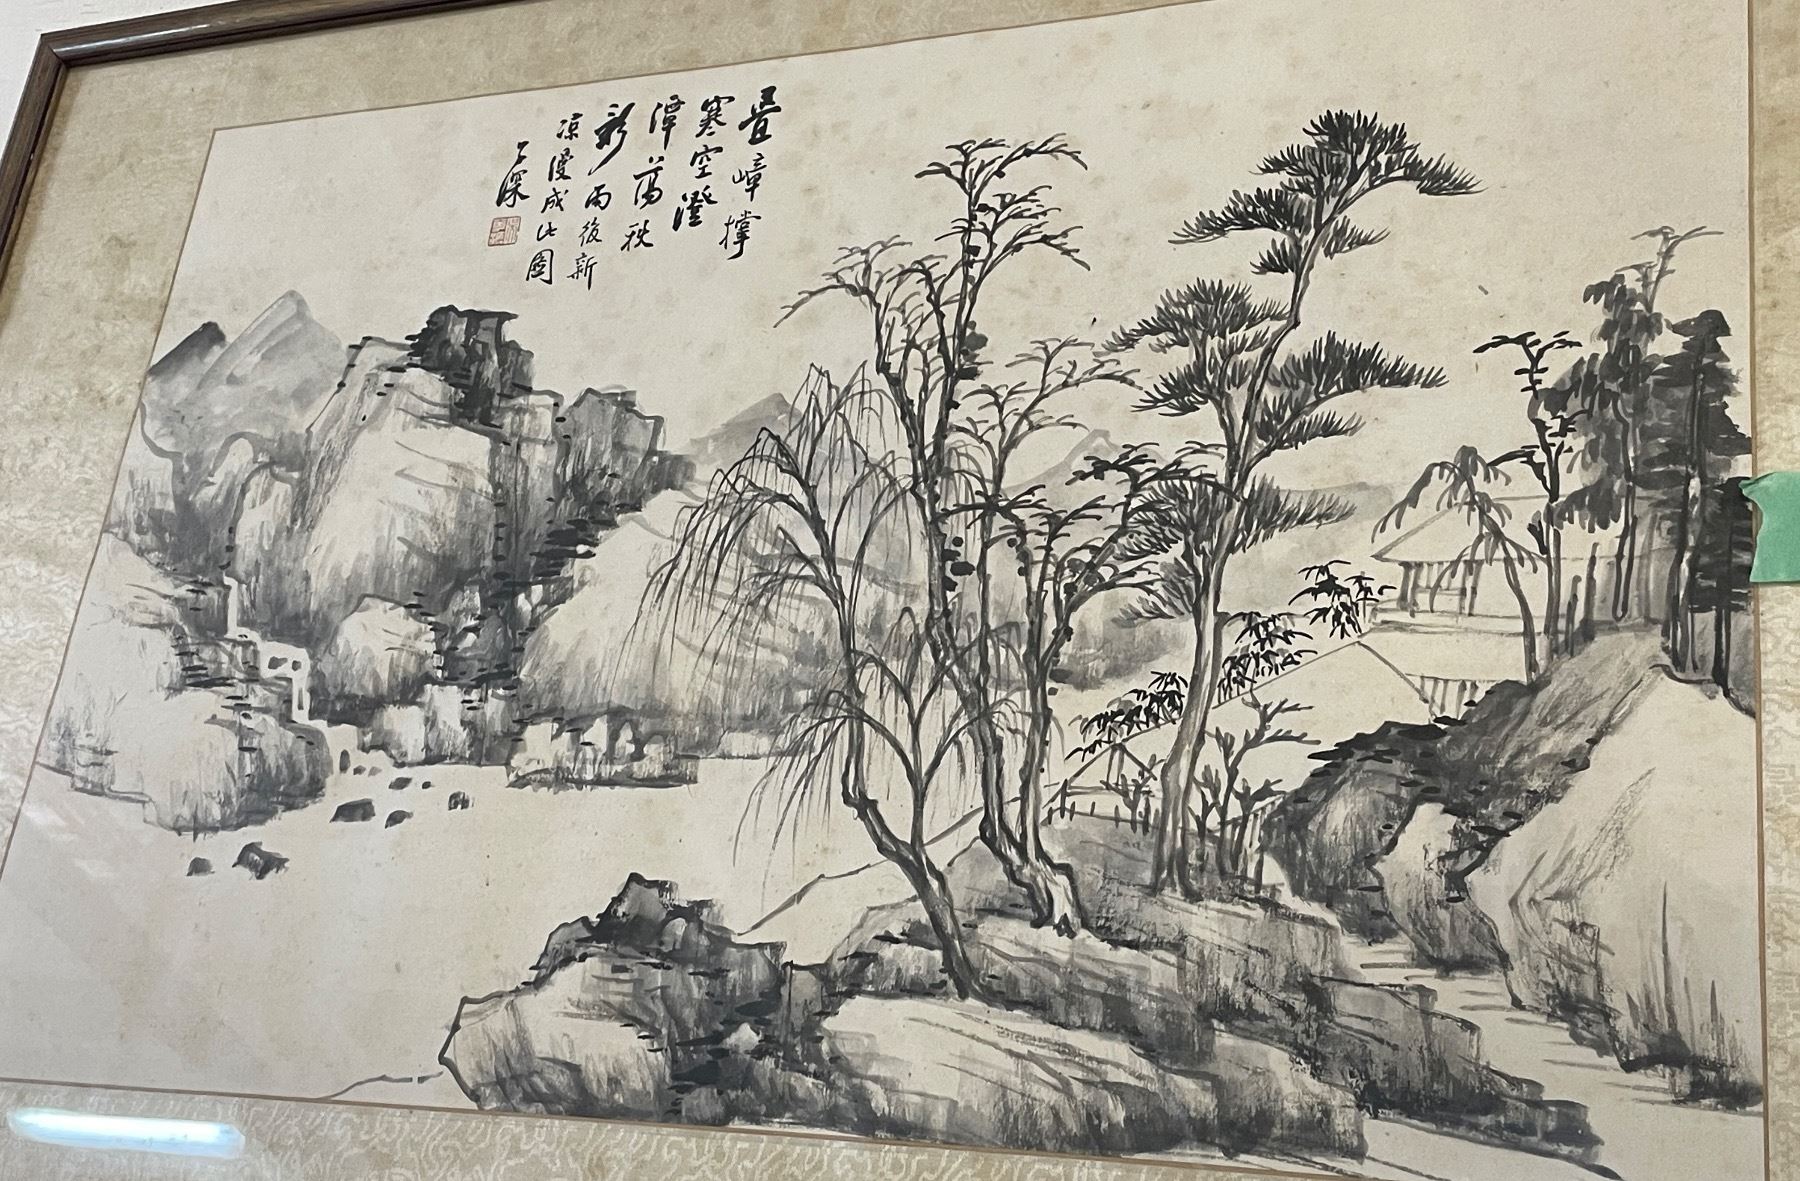 疊嶂撐
寒空澄
潭蕩秋
影雨後新
涼漫成此圖
子深